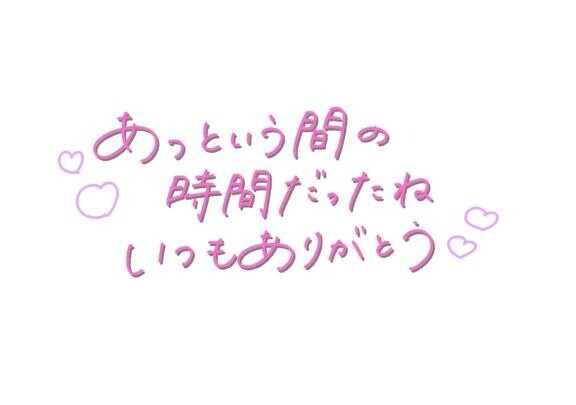 あっという間の
時間だったね
いつもありがとう